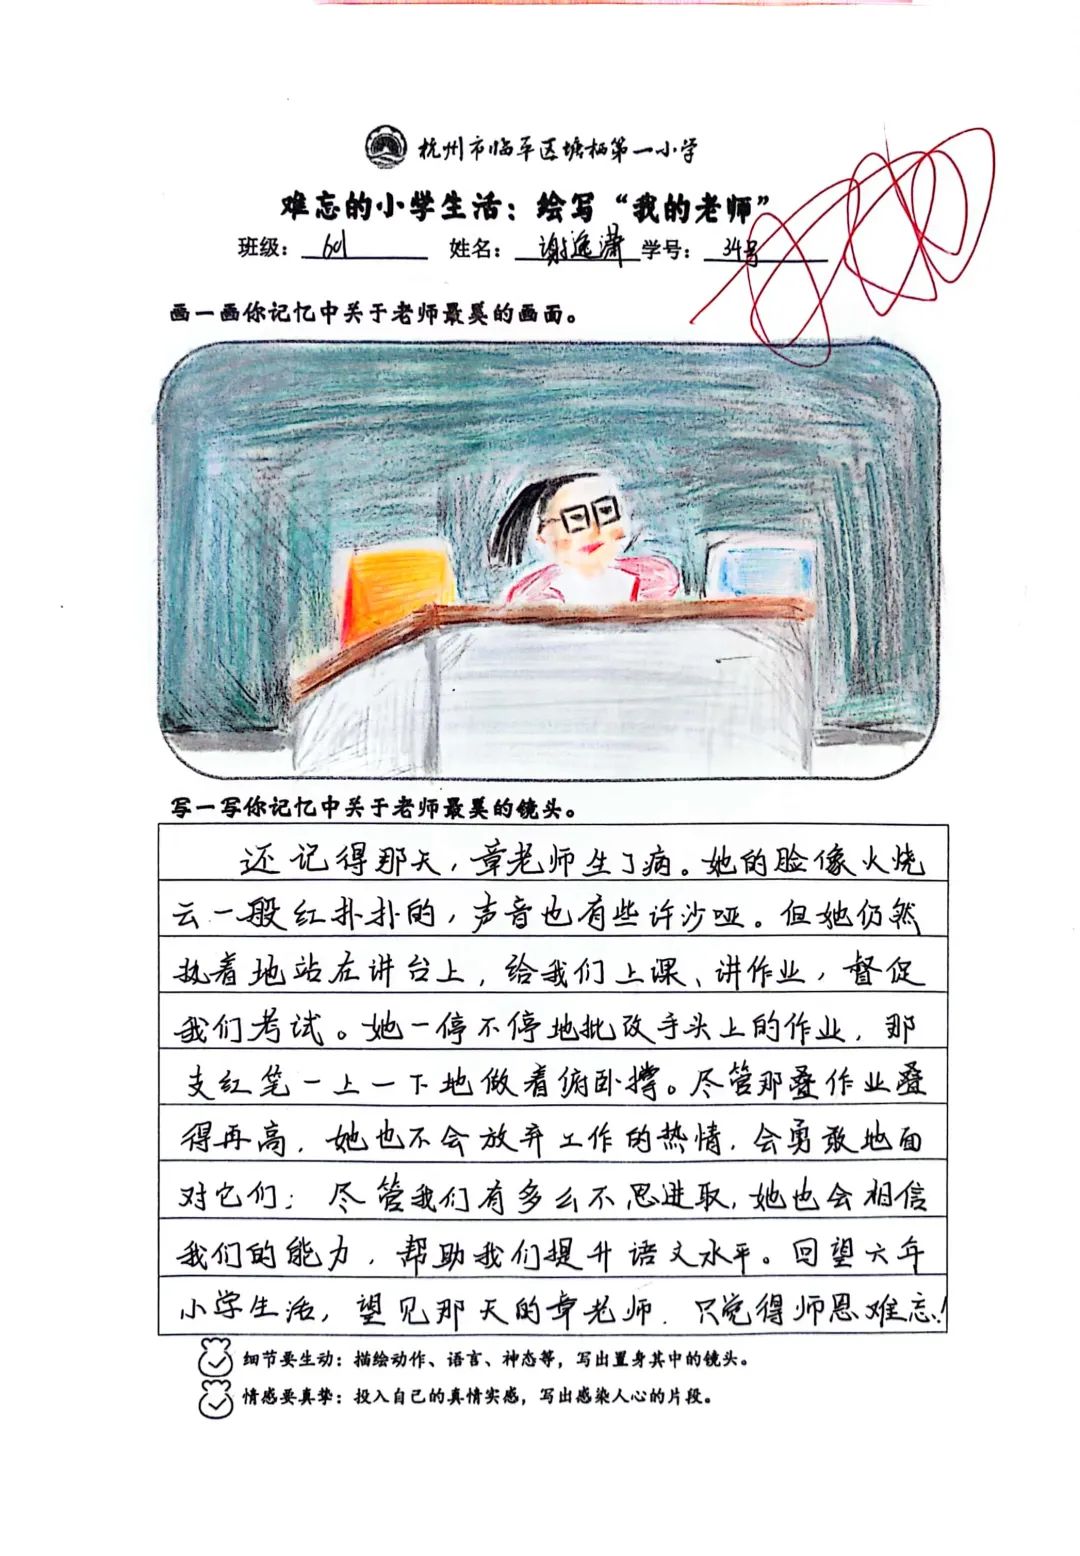 杭州市临平区塘栖第一小学
难忘的小学生活：绘写“我的老师”
班级：601 姓名：谢逸潇 学号：34号
画一画你记忆中关于老师最美的画面。
写一写你记忆中关于老师最美的镜头。
还记得那天，章老师生了病。她的脸像火烧
云一般红扑扑的，声音也有些许沙哑。但她仍然
执着地站在讲台上，给我们上课、讲作业，督促
我们考试。她一停不停地批改手头上的作业，那
支红笔一上一下地做着俯卧撑。尽管那叠作业叠
得再高，她也不会放弃工作的热情，会勇敢地面
对它们；尽管我们有多么不思进取，她也会相信
我们的能力，帮助我们提升语文水平。回望六年
小学生活，望见那天的章老师，只觉得师恩难忘！
细节要生动：描绘动作、语言、神态等，写出置身其中的镜头。
情感要真挚：投入自己的真情实感，写出感染人心的片段。